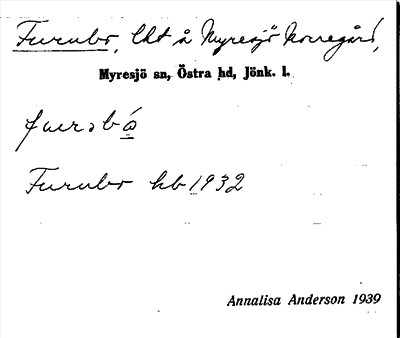 Furubo, lht å Myresjö Norregård,
Myresjö sn, Östra hd, Jönk. l.
furəbó̲
Furubo hb 1932
Annalisa Anderson 1939